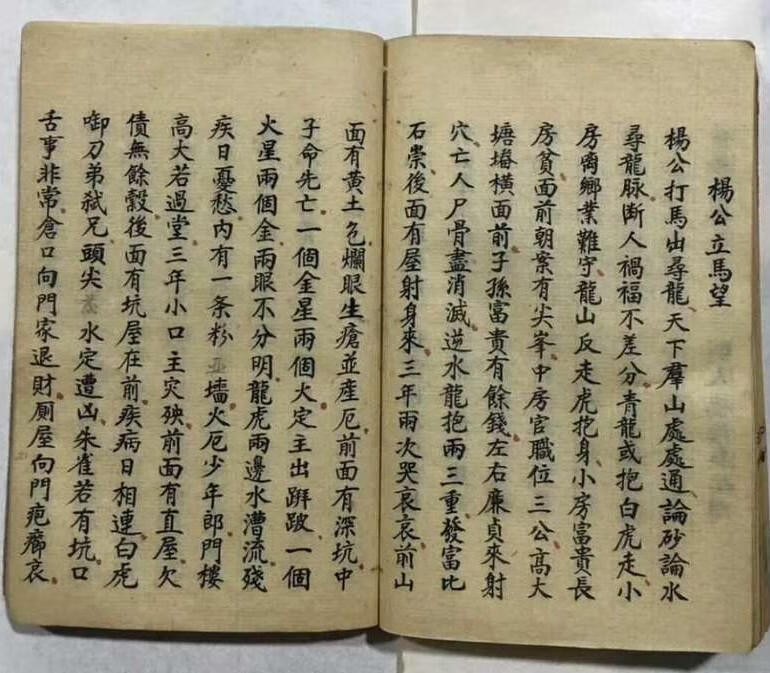 楊公立馬望
楊公打馬出尋龍天下羣山處處通論砂論水
尋龍脉斷人禍福不差分青龍或抱白虎走小
房离鄉業難守龍山反走虎抱身小房富貴長
房貧面前朝案有尖峯中房官職位三公高大
塘壪橫面前子孫富貴有餘錢左右廉貞來射
穴亡人尸骨盡消滅逆水龍抱兩三重發富比
石崇後面有屋射身來三年兩次哭哀哀前山
面有黃土色爛眼生瘡並產厄前面有深坑中
子命先亡一個金星兩個火定主出跰跛一個
火星兩個金兩眼不分明龍虎兩邊水漕流殘
疾日憂愁内有一条粉墻火厄少年郎門樓
高大若過堂三年小口主灾殃前面有直屋欠
債無餘穀後面有坑屋在前疾病日相連白虎
啣刀弟弑兄頭尖水定遭凶朱雀若有坑口
舌事非常倉口向門家退財厠屋向門疤癤哀